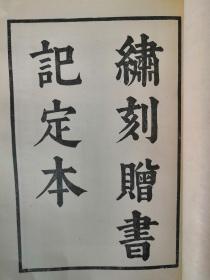 繡刻贈書
記定本